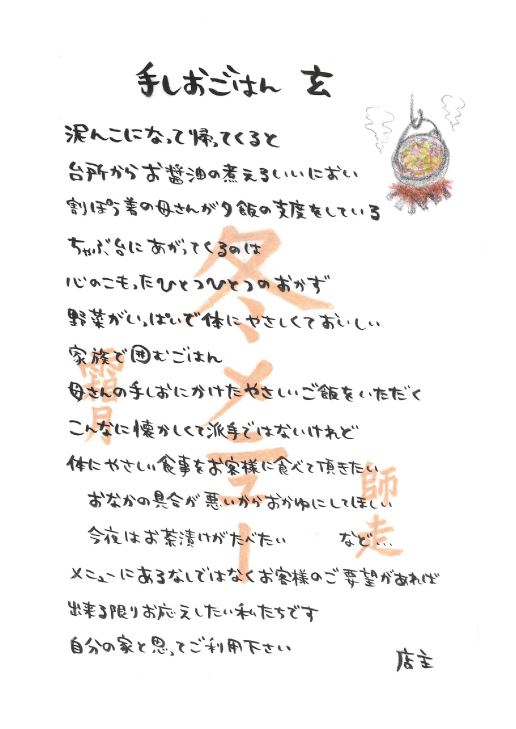 手しおごはん 玄
泥んこになって帰ってくると
台所からお醤油の煮えるいいにおい
割ぽう着の母さんが夕飯の支度をしている
ちゃぶ台にあがってくるのは
心のこもったひとつひとつのおかず
野菜がいっぱいで体にやさしくておいしい
家族で囲むごはん
母さんの手しおにかけたやさしいご飯をいただく
こんなに懐かしくて派手ではないけれど
体にやさしい食事をお客様に食べて頂きたい
おなかの具合が悪いからおかゆにしてほしい
今夜はお茶漬けがたべたい など...
メニューにあるなしではなくお客様のご要望があれば
出来る限りお応えしたい私たちです
自分の家と思ってご利用下さい
店主
冬メニュー
霜月
師走